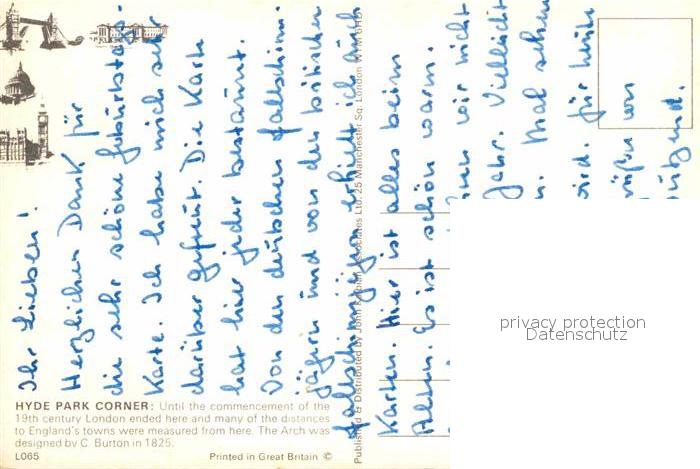 Ihr Lieben!
Herzlichen Dank für
die sehr schöne Geburtstags-
karte. Ich habe mich sehr
darüber gefreut. Die Karte
hat hier jeder bestaunt.
Von den deutschen Fallschirm-
jägern und von den britischen
Fallschirmjägern erhielt ich auch
Karten. Hier ist alles beim
Alten. Es ist schön warm.
wir nicht
Jahr. Vielleicht
Mal sehen
wird. Für heute
HYDE PARK CORNER: Until the commencement of the
19th century London ended here and many of the distances
to England's towns were measured from here. The Arch was
designed by C. Burton in 1825.
L065 Printed in Great Britain ©
Published & Distributed by John Associates Ltd. 25 Manchester Sq. London
privacy protection
Datenschutz